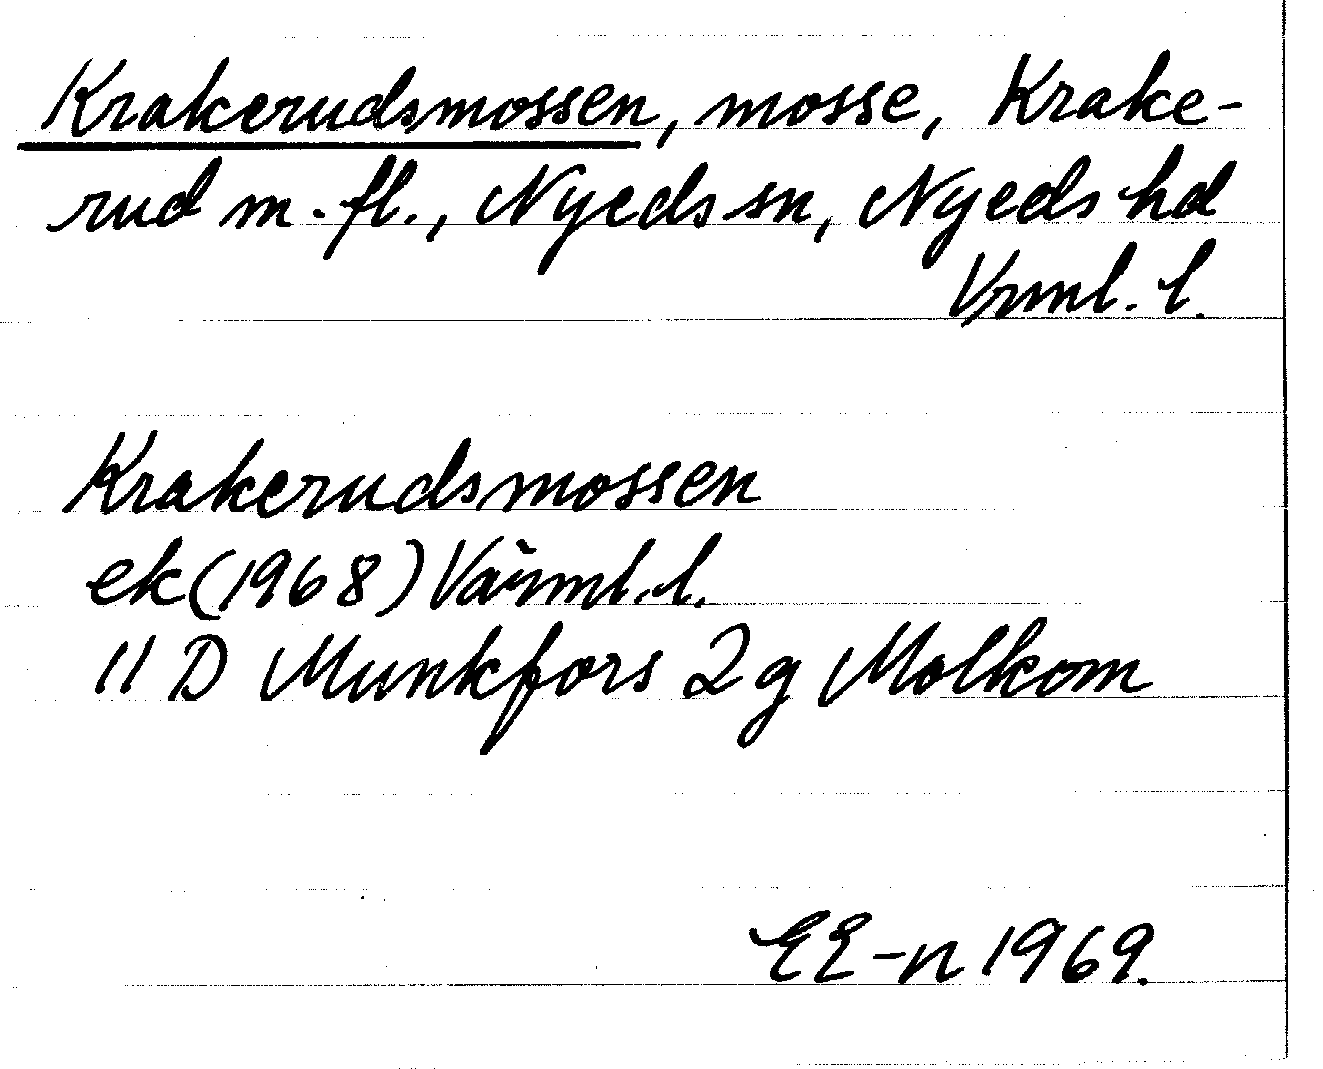 Krakerudsmossen, mosse, Krake-
rud m. fl., Nyeds sn, Nyeds hd
Vrml. l.
Krakerudsmossen
ek (1968) Värml. l.
11 D Munkfors 2g Molkom
EE-n 1969.